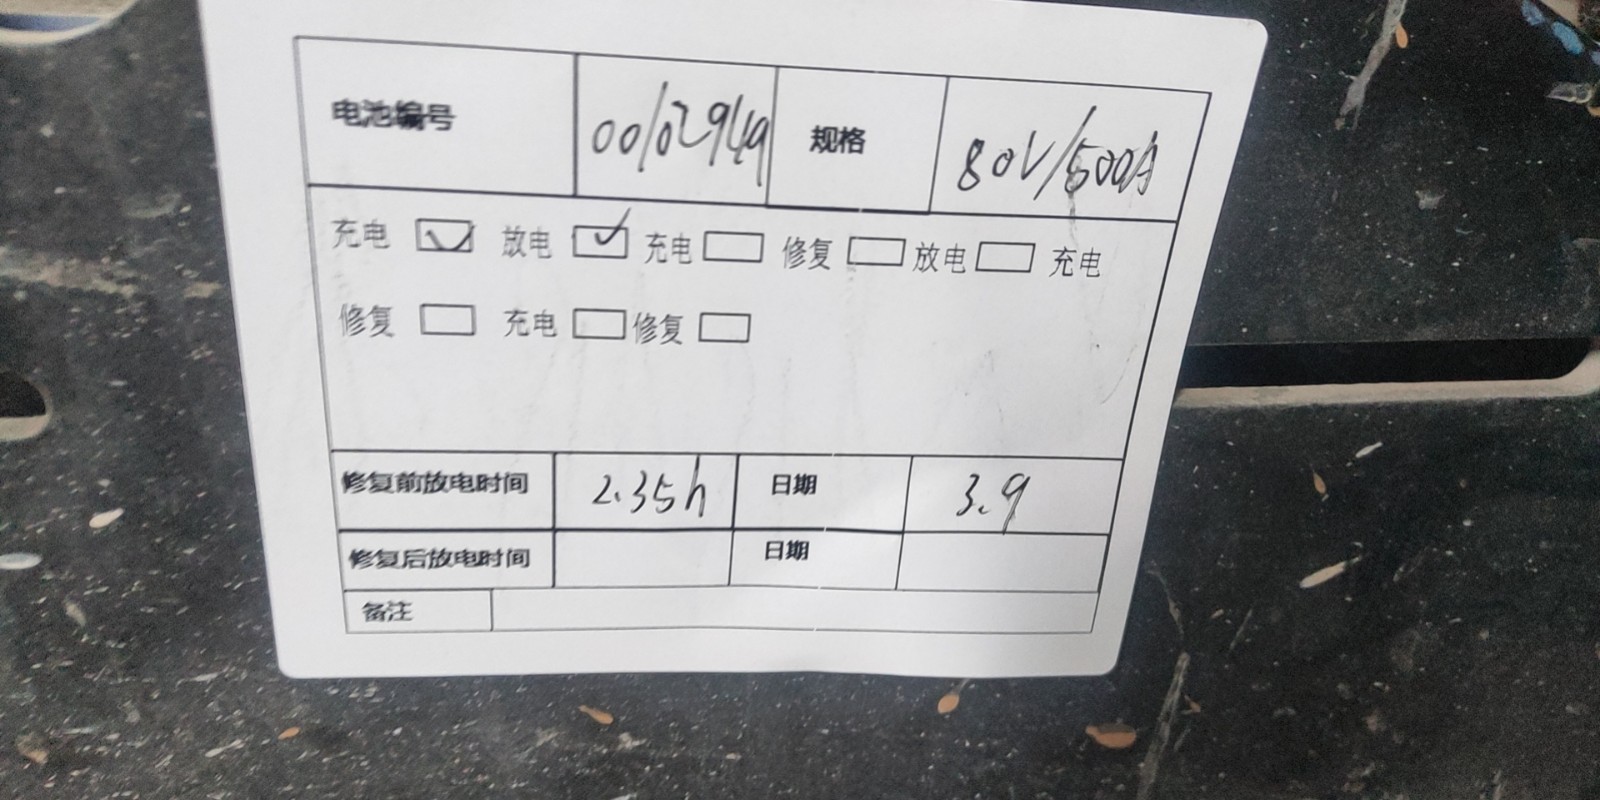 电池编号 00102949 规格 80V/500A
充电 放电 充电 修复 放电 充电
修复 充电 修复
修复前放电时间 2.35h 日期 3.9
修复后放电时间 日期
备注